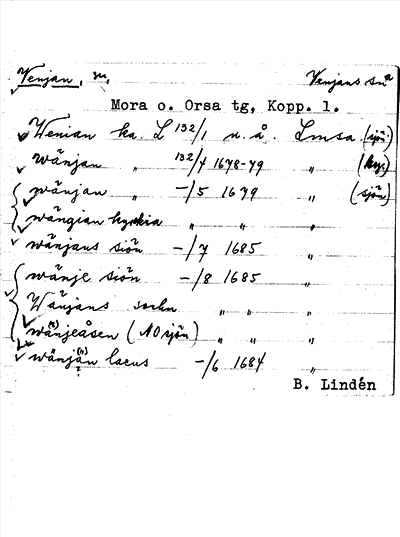 Venjan, sn, Venjans sna
Mora o. Orsa tg, Kopp. l.
Wenian ka. L 132/1 u.å. Lmsa (sjö)
wänjan " 132/4 1678-79 " (by)
wänjan " -/5 1679 " (sjön)
wängian kyrkia " " "
wänjans siön -/7 1685 "
wänje siön -/8 1685 "
Wänjans sochn " " "
wänjeåsen (NO sjön) " " "
wänjan (n) lacus -/6 1684 "
B. Lindén